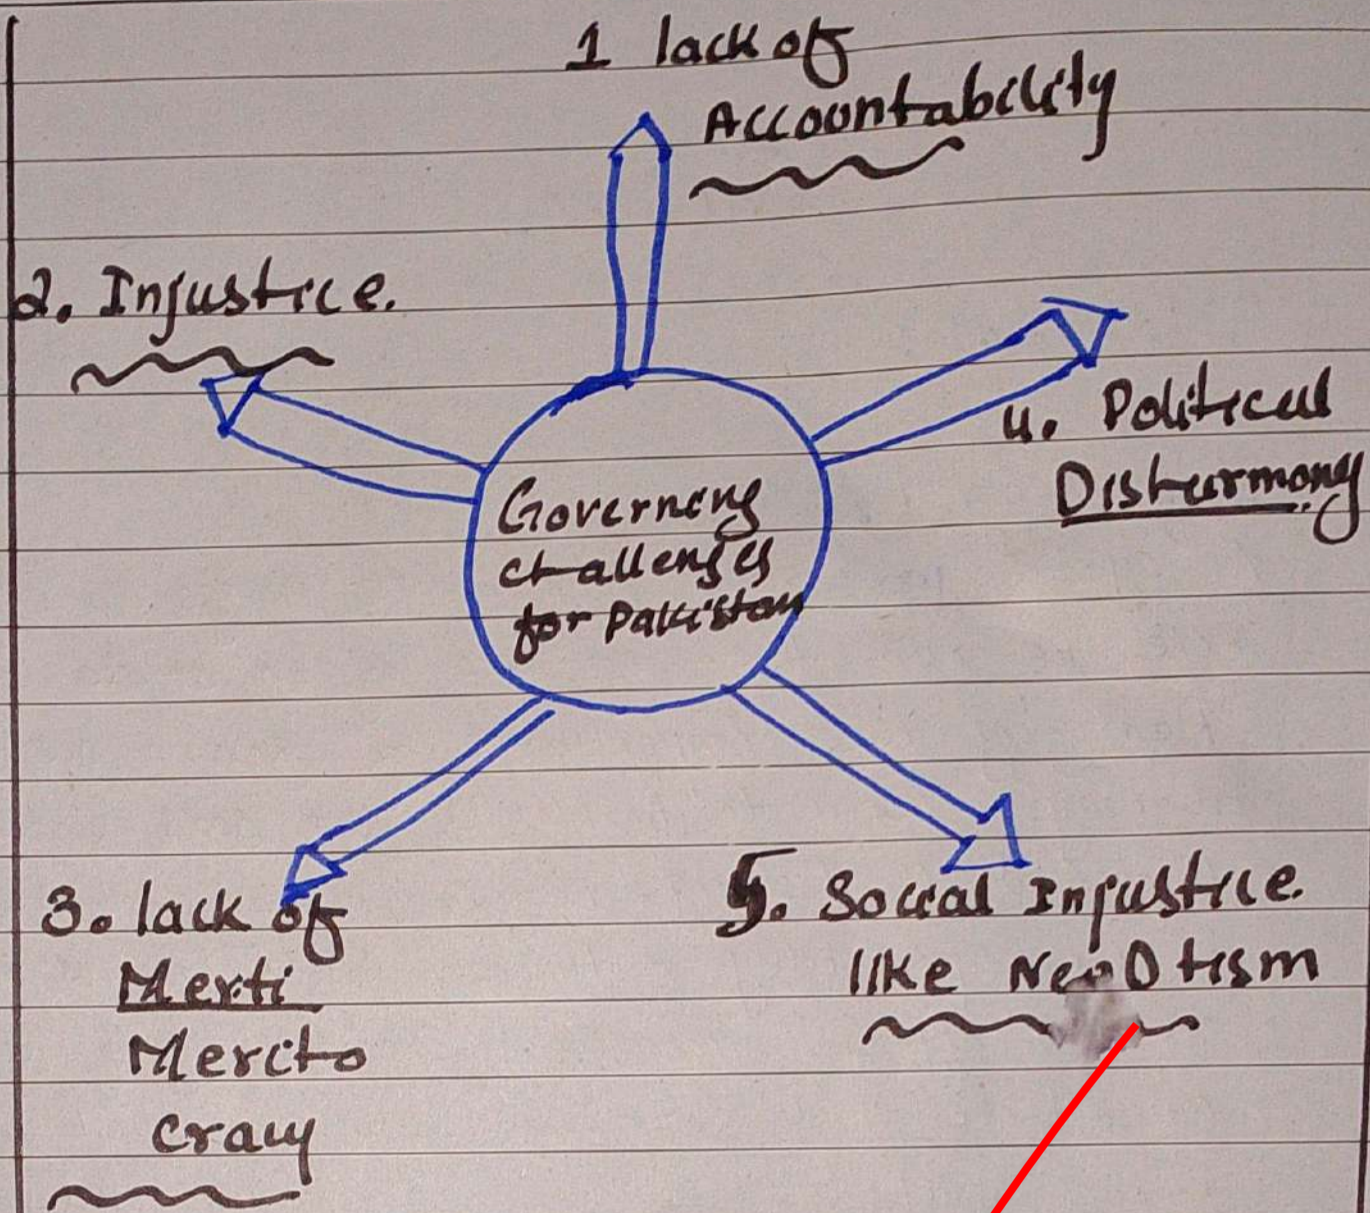 1 lack of
Accountability
2. Injustice.
Governing
challenges
for Pakistan
4. Political
Disharmony
3. lack of
Merti
Merito
cracy
5. Social Injustice.
like Nepotism